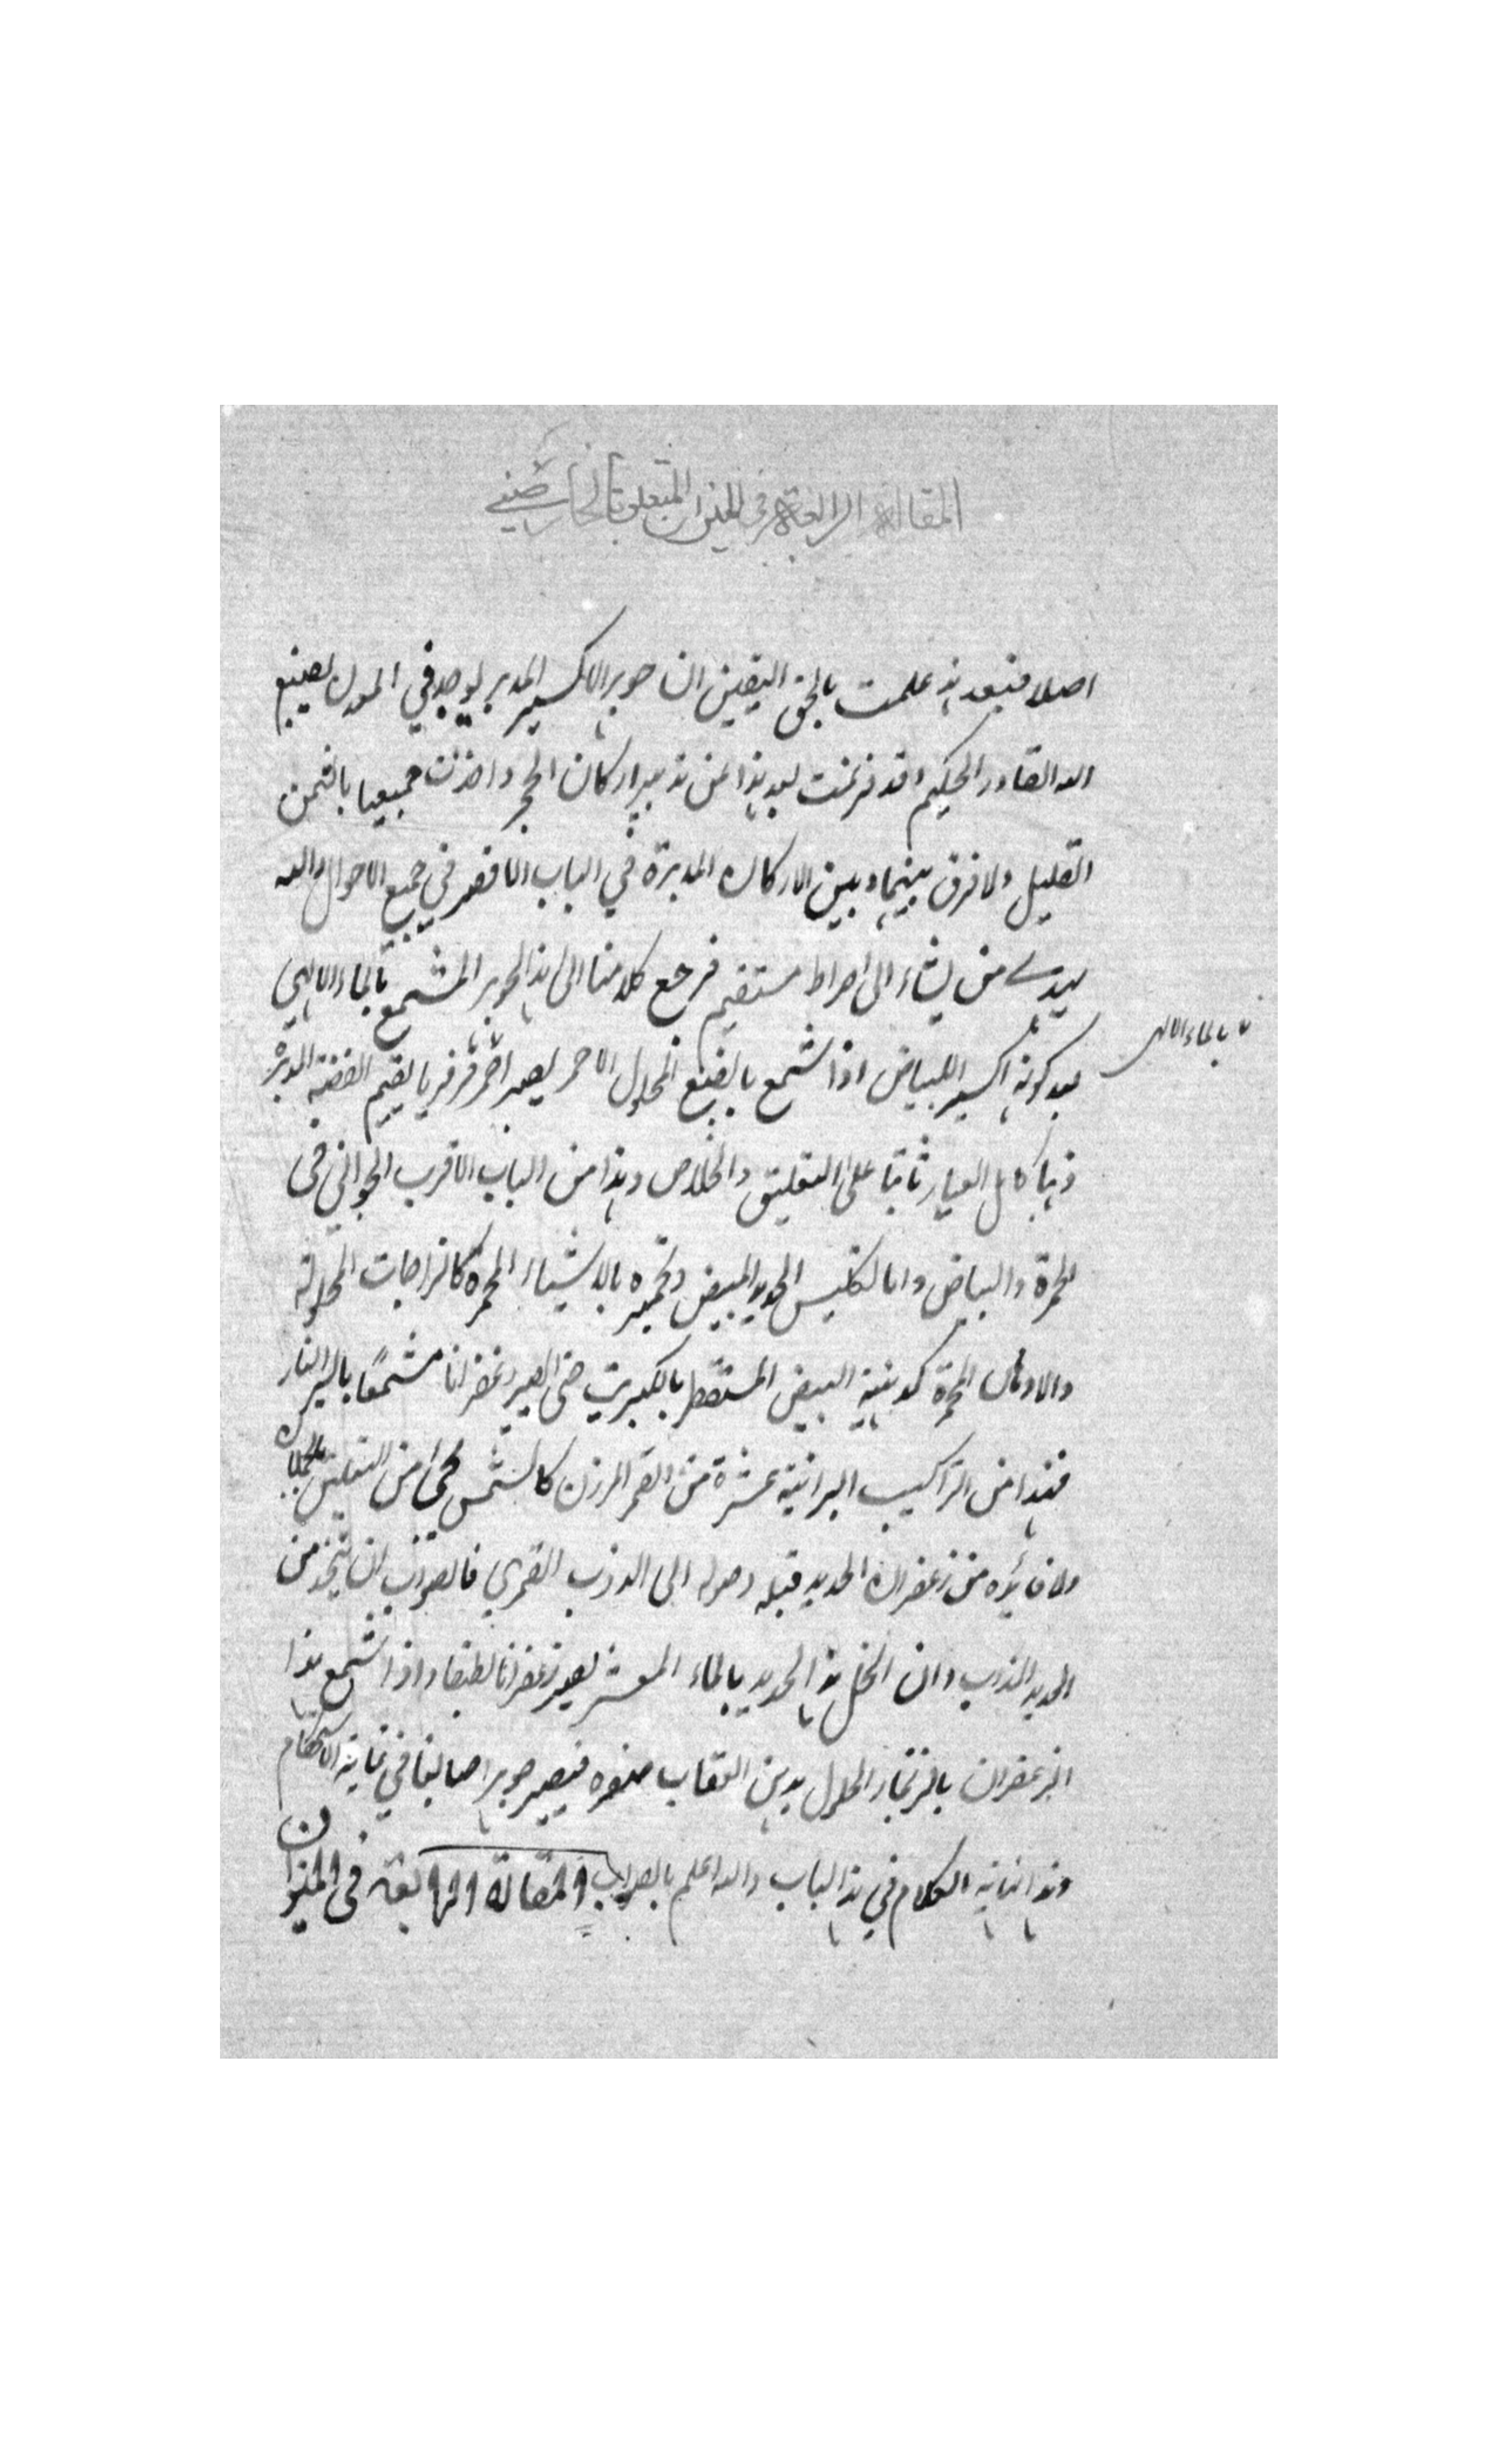 المقالة الرابعة في الميزان المتعلق بالخارصيني
اصلا فبعد هذه علمت بالحق اليقين ان جوهر الاكسير المدبر يوجد في المعدن بصنع
الله القادر الحكيم وقد فرغت بعد هذا من تدبير اركان الحجر واخذت جميعها بالثمن
القليل ولا فرق بينهما وبين الاركان المدبرة في الباب الاقصر في جميع الاحوال والله
يهدي من يشاء الى صراط مستقيم فرجع كلامنا الى هذا الجوهر المشمع بالماء الالهي
بالماء الالهي
بعد كونه اكسير البياض اذا شمع بالصبغ المحلول الاحمر يصير احمر فرفريا يقيم الفضة المدبرة
ذهبا كامل العيار ثابتا على التعليق والخلاص وهذا من الباب الاقرب الجواني في
الحمرة والبياض واما تكليس الحديد المبيض وتحميره بالاشياء المحمرة كالزاجات المحلولة
والادهان المحمرة كدهنية البيض المستقطر بالكبريت حتى يصير زعفرانا مشمعا بالسير النار
فهذا من التراكيب البرانية عشرة من القمر المرزن كالشمس يحمى من التعليق
ولا فائدة من زعفران الحديد قبل وصوله الى الذوب القمري فالصواب ان يتخذ من
الحديد المذاب وان انحل هذا الحديد بالماء المعشر يصير زعفرانا لطيفا واذا شمع هذا
الزعفران بالزنجار المحلول بدهن العقاب صنفره فيصير جوهرا صابغا في غاية الاستحكام
وهذا نهاية الكلام في هذا الباب والله اعلم بالصواب المقالة الرابعة في الميزان